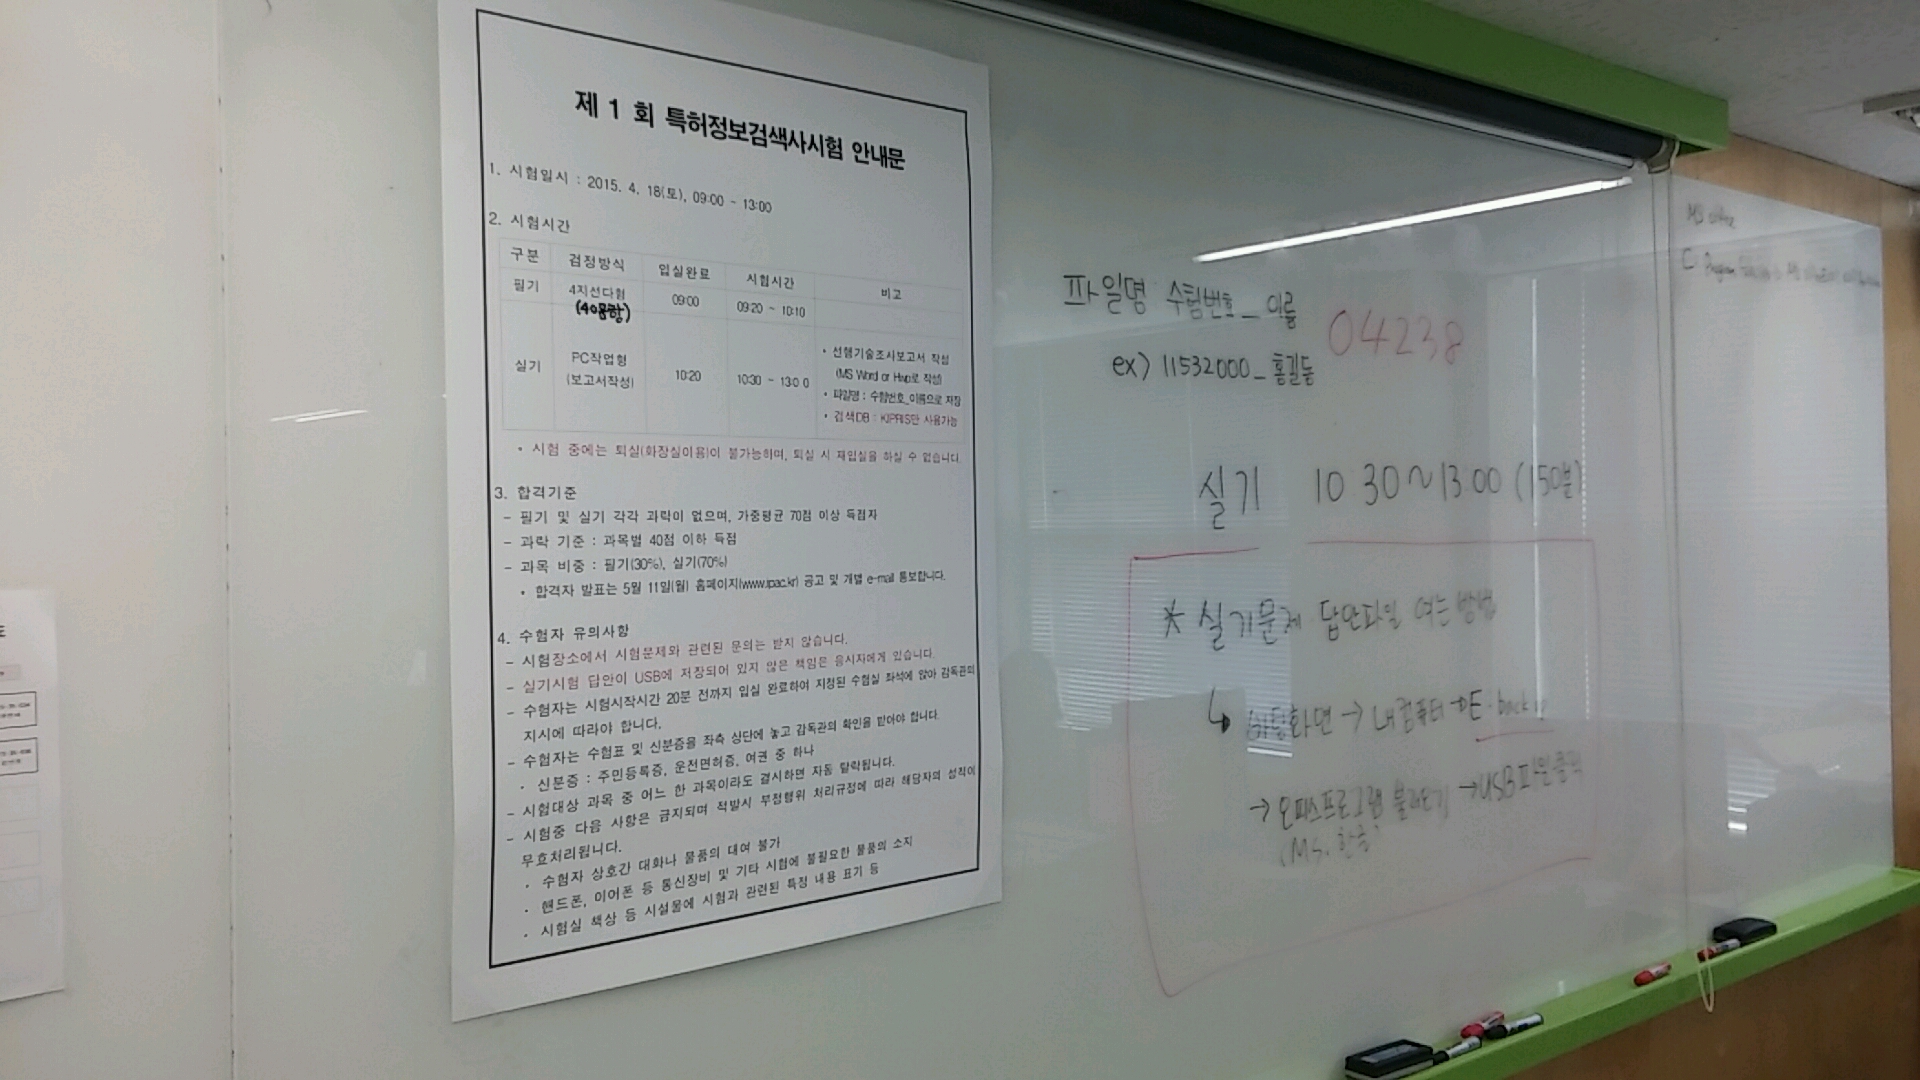 제 1 회 특허정보검색사시험 안내문
1. 시험일시 : 2015. 4. 18(토), 09:00 ~ 13:00
2. 시험시간
구분 검정방식 입실완료 시험시간 비고
필기 4지선다형 (40문항) 09:00 09:20 ~ 10:10
실기 PC작업형 (보고서작성) 10:20 10:30 ~ 13:00
• 선행기술조사보고서 작성
(MS Word or Hwp로 작성)
• 파일명 : 수험번호_이름으로 저장
• 검색DB : KIPRIS만 사용가능
• 시험 중에는 퇴실(화장실이용)이 불가능하며, 퇴실 시 재입실을 하실 수 없습니다.
3. 합격기준
- 필기 및 실기 각각 과락이 없으며, 가중평균 70점 이상 득점자
- 과락 기준 : 과목별 40점 이하 득점
- 과목 비중 : 필기(30%), 실기(70%)
• 합격자 발표는 5월 11일(월) 홈페이지(www.ipac.kr) 공고 및 개별 e-mail 통보합니다.
4. 수험자 유의사항
- 시험장소에서 시험문제와 관련된 문의는 받지 않습니다.
- 실기시험 답안이 USB에 저장되어 있지 않은 책임은 응시자에게 있습니다.
- 수험자는 시험시작시간 20분 전까지 입실 완료하여 지정된 수험실 좌석에 앉아 감독관의
지시에 따라야 합니다.
- 수험자는 수험표 및 신분증을 좌측 상단에 놓고 감독관의 확인을 받아야 합니다.
• 신분증 : 주민등록증, 운전면허증, 여권 중 하나
- 시험대상 과목 중 어느 한 과목이라도 결시하면 자동 탈락됩니다.
- 시험중 다음 사항은 금지되며 적발시 부정행위 처리규정에 따라 해당자의 성적이
무효처리됩니다.
· 수험자 상호간 대화나 물품의 대여 불가
· 핸드폰, 이어폰 등 통신장비 및 기타 시험에 불필요한 물품의 소지
· 시험실 책상 등 시설물에 시험과 관련된 특정 내용 표기 등
파일명 수험번호_이름
04238
ex) 11532000_홍길동
실기 10:30~13:00 (150분)
* 실기문제 답안파일 여는 방법
↳ 바탕화면 → 내컴퓨터 → E: back up
→ 오피스프로그램 불러오기 → USB파일클릭
(MS, 한글)
MS office